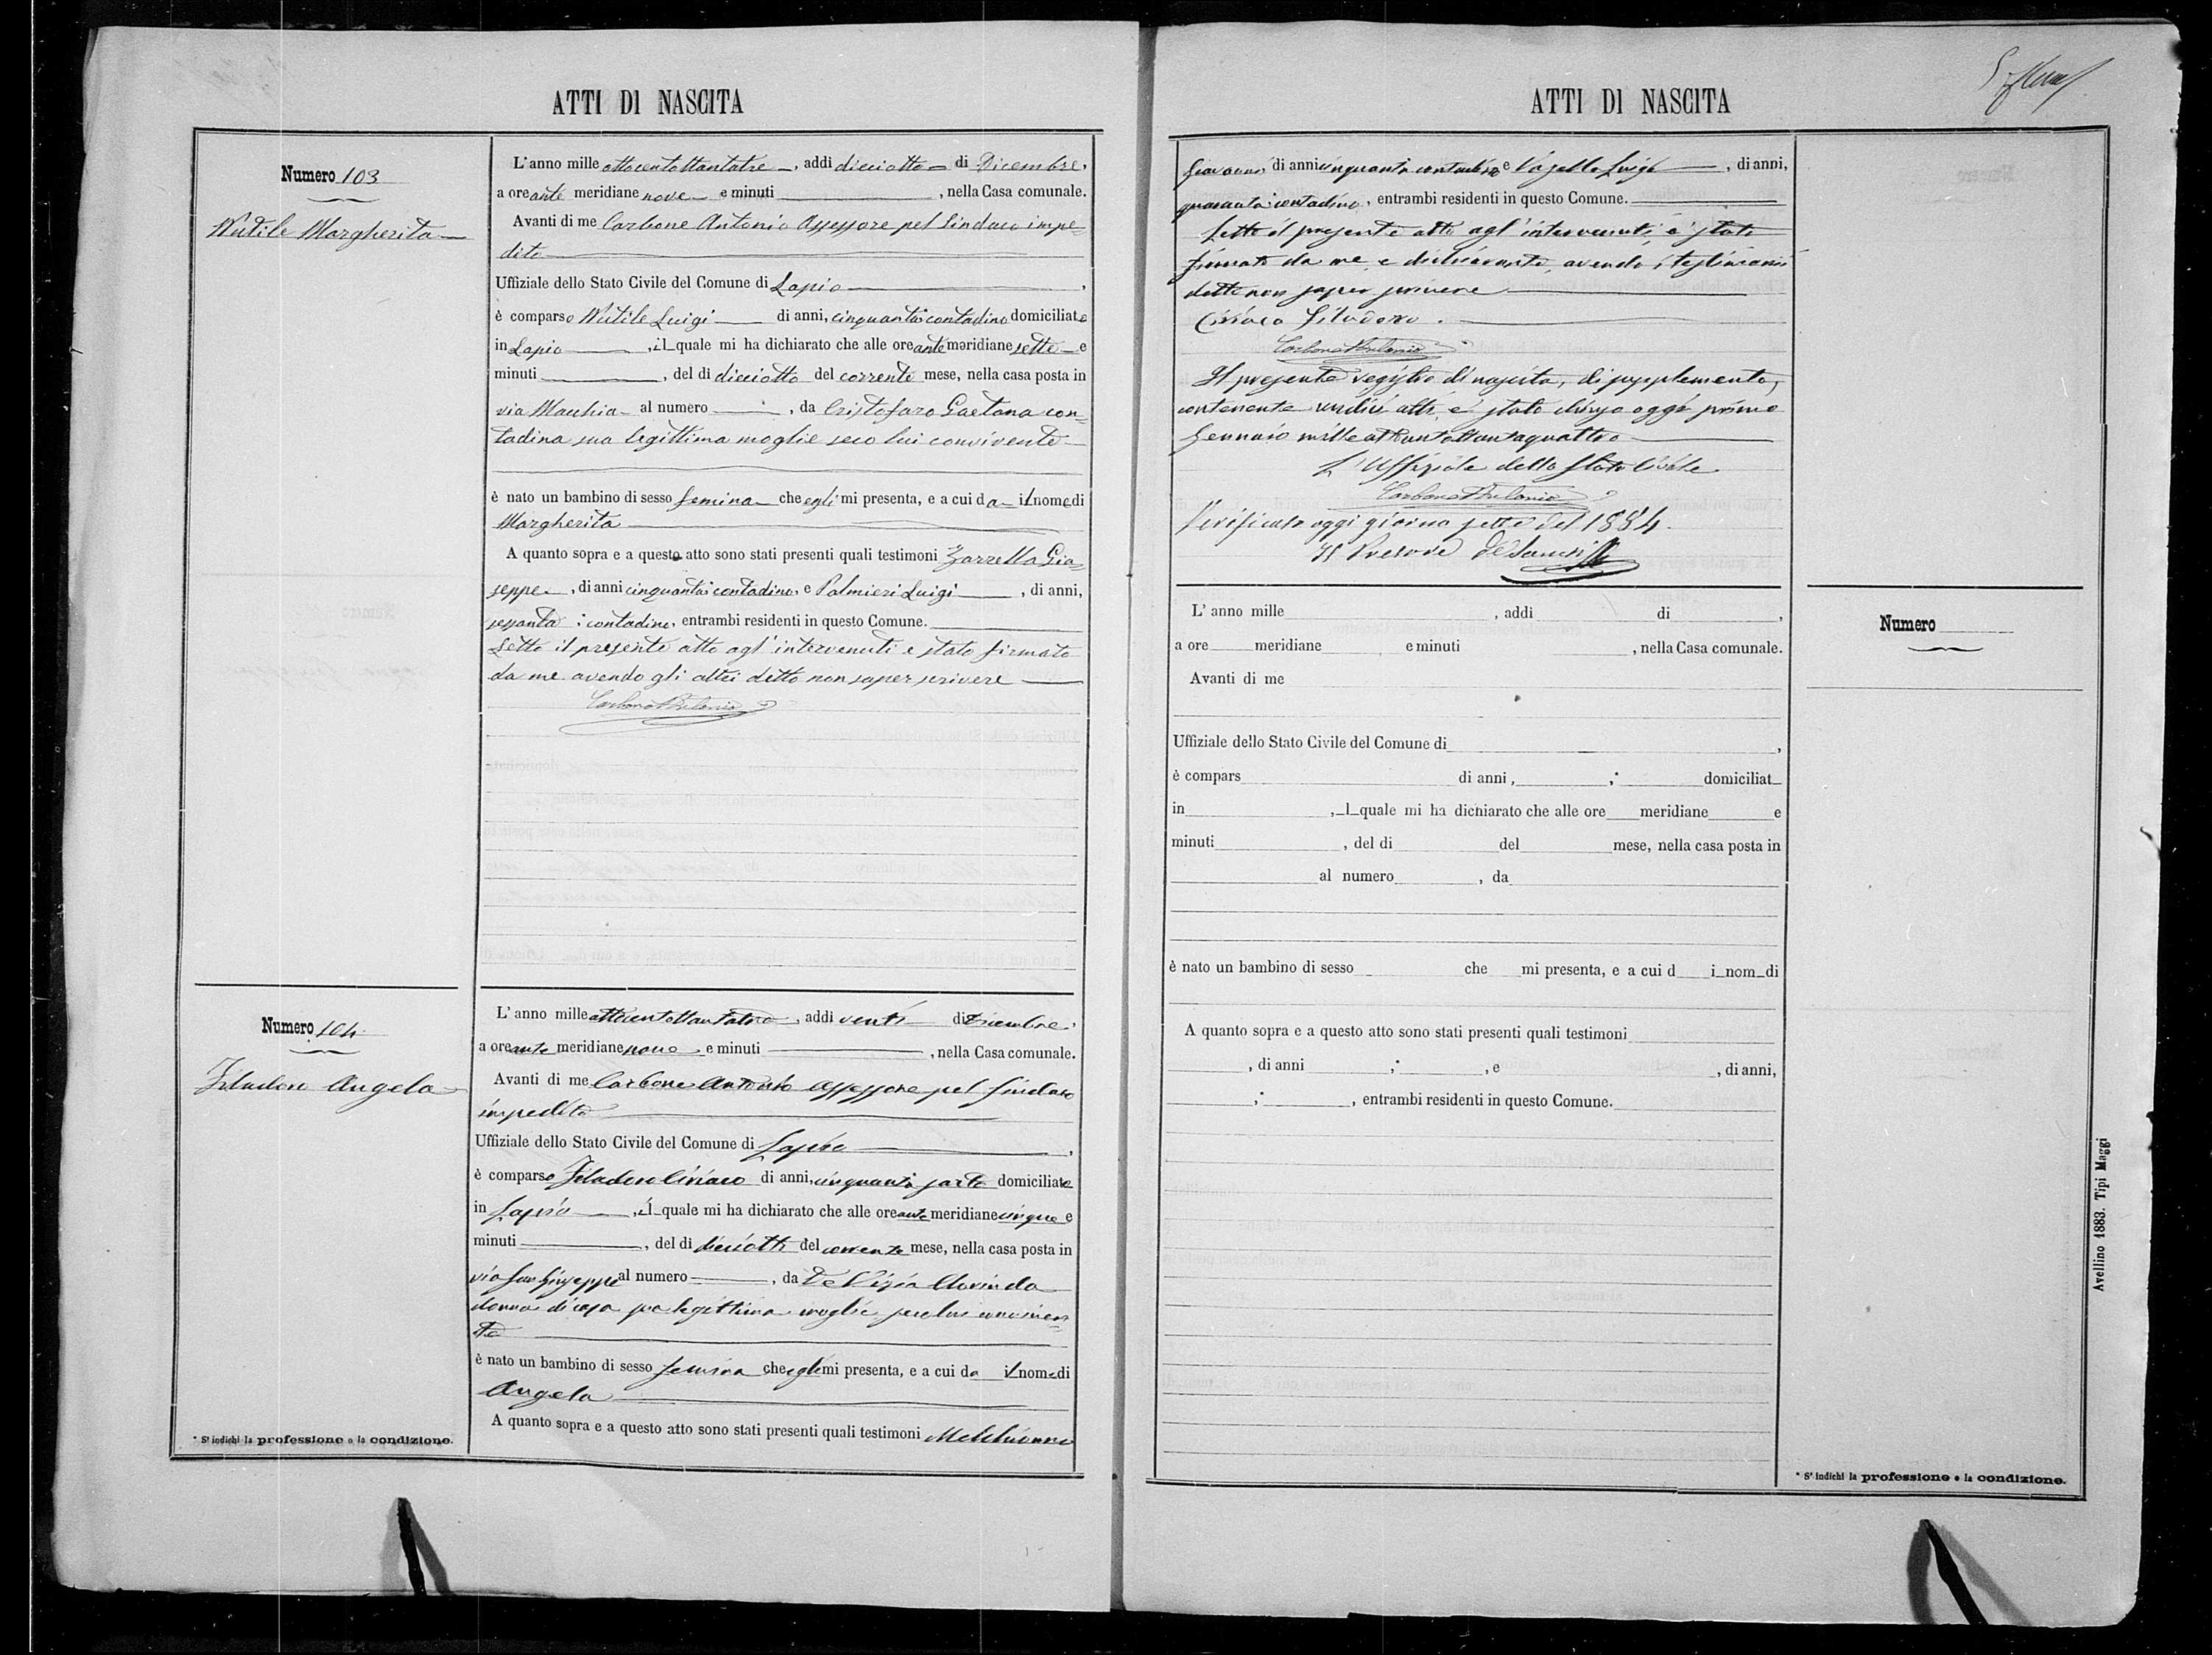 ATTI DI NASCITA
Numero 103
Nutile Margherita
L'anno mille ottocentottantatre, addì dieciotto di Dicembre,
a ore ante meridiane nove e minuti , nella Casa comunale.
Avanti di me Carbone Antonio Assessore pel Sindaco impe=
dito
Uffiziale dello Stato Civile del Comune di Lapio ,
è comparso Nutile Luigi di anni, cinquanta; contadino domiciliato
in Lapio , il quale mi ha dichiarato che alle ore ante meridiane sette e
minuti , del dì dieciotto del corrente mese, nella casa posta in
via Macchia al numero , da Cristofaro Gaetana con=
tadina sua legittima moglie seco lui convivente
è nato un bambino di sesso femina che egli mi presenta, e a cui da il nome di
Margherita
A quanto sopra e a questo atto sono stati presenti quali testimoni Zarrella Giu=
seppe, di anni cinquanta; contadino, e Palmieri Luigi , di anni,
sessanta; contadino, entrambi residenti in questo Comune.
Letto il presente atto agl'intervenuti e stato firmato
da me avendo gli altri detto non saper scrivere
Carbone Antonio
Numero 104
Filadoro Angela
L'anno mille ottocentottantatre, addì venti di Dicembre,
a ore ante meridiane nove e minuti , nella Casa comunale.
Avanti di me Carbone Antonio Assessore pel Sindaco
impedito
Uffiziale dello Stato Civile del Comune di Lapio ,
è comparso Filadoro Ciriaco di anni, cinquanta; sarto domiciliato
in Lapio , il quale mi ha dichiarato che alle ore ante meridiane cinque e
minuti , del dì dieciotto del corrente mese, nella casa posta in
via San Giuseppe al numero , da De Vizia Clorinda
donna di casa sua legittima moglie seco lui conviven=
te
è nato un bambino di sesso femina che egli mi presenta, e a cui da il nome di
Angela
A quanto sopra e a questo atto sono stati presenti quali testimoni Melchionno
* Si indichi la professione o la condizione.
ATTI DI NASCITA
Giovanni di anni cinquanta contadino e Luigi , di anni,
quaranta; contadino, entrambi residenti in questo Comune.
Letto il presente atto agl'intervenuti, è stato
firmato da me, e dichiarante, avendo i testimoni
detto non saper scrivere
Ciriaco Filadoro.
Carbone Antonio
Il presente registro di nascita, di supplemento,
contenente undici atti, è stato chiuso oggi primo
Gennaio milleottocentottantaquattro
L'Uffiziale dello Stato Civile
Carbone Antonio
Verificato oggi giorno sette del 1884.
Il Pretore
L' anno mille , addì di ,
a ore meridiane e minuti , nella Casa comunale.
Avanti di me
Uffiziale dello Stato Civile del Comune di ,
è compars di anni, ; domiciliat
in , l quale mi ha dichiarato che alle ore meridiane e
minuti , del dì del mese, nella casa posta in
al numero , da
è nato un bambino di sesso che mi presenta, e a cui d i nom di
A quanto sopra e a questo atto sono stati presenti quali testimoni
, di anni ; , e , di anni,
; , entrambi residenti in questo Comune.
Numero
* Si indichi la professione o la condizione.
Avellino 1883. Tipi Maggi